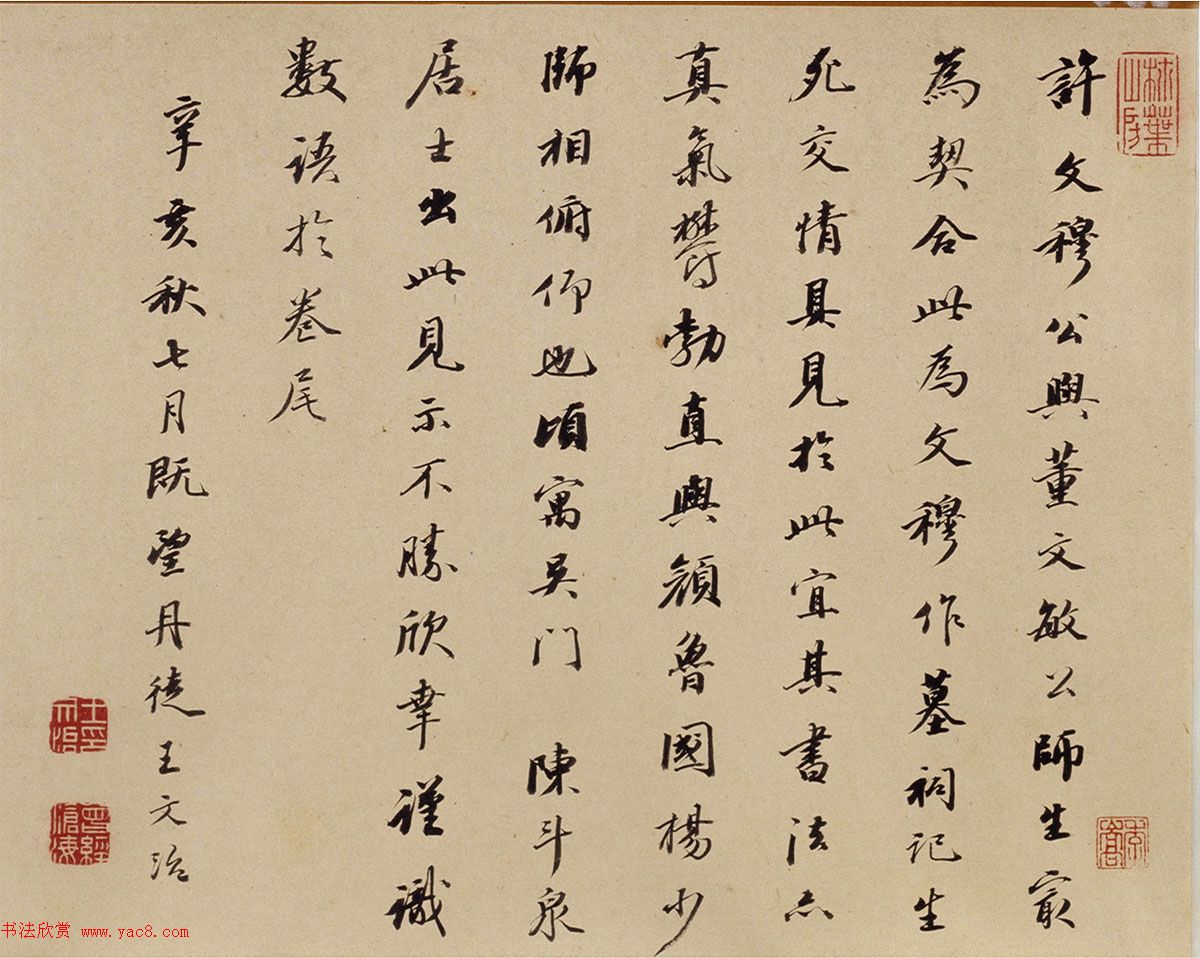 許文穆公與董文敏公師生㝡
為契合此為文穆作墓祠記生
死交情具見於此宜其書法亦
真氣鬱勃直與顏魯國楊少
師相俯仰也頃寓吳門 陳斗泉
居士出此見示不勝欣幸謹識
數語於卷尾
辛亥秋七月既望丹徒王文治
曾經滄海
书法欣赏 www.yac8.com